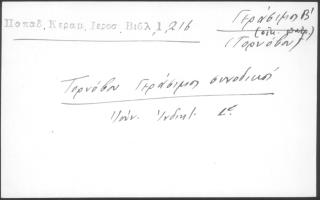 Παπαδ. Κεραμ. Ιεροσ. Βιβλ 1, 216
Γεράσιμος Β'
(Τορνόβου)
Τορνόβου Γεράσιμος συνοδικοί
Ἰούν. Ἰνδικτ.